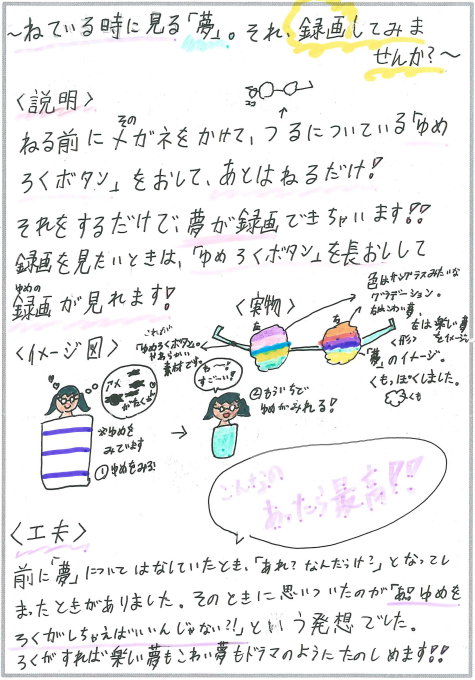 ～ねている時に見る「夢」。それ、録画してみま
せんか？～
〈説明〉
ねる前にそのメガネをかけて、つるについている「ゆめ
ろくボタン」をおして、あとはねるだけ！
それをするだけで、夢が録画できちゃいます！！
録画を見たいときは、「ゆめろくボタン」を長おしして
ゆめの
録画が見れます！
〈実物〉
色はサングラスみたいな
グラデーション。
右は楽しい夢
をイメージ
〈形〉
「夢」のイメージ。
くもっぽくしました。
くも
〈イメージ図〉
これが
「ゆめろくボタン。」
やわらかい
素材です。
アメ
がたくさん
※ゆめを
みています
①ゆめをみる！
わー！
すごーい！
②もういちど
ゆめがみれる！
こんなの
あったら最高！！
〈工夫〉
前に「夢」についてはなしていたとき、「あれ？なんだっけ？」となってし
まったときがありました。そのときに思いついたのが「あっ！ゆめを
ろくがしちゃえばいいんじゃない？！」という発想でした。
ろくがすれば楽しい夢もこわい夢もドラマのようにたのしめます！！